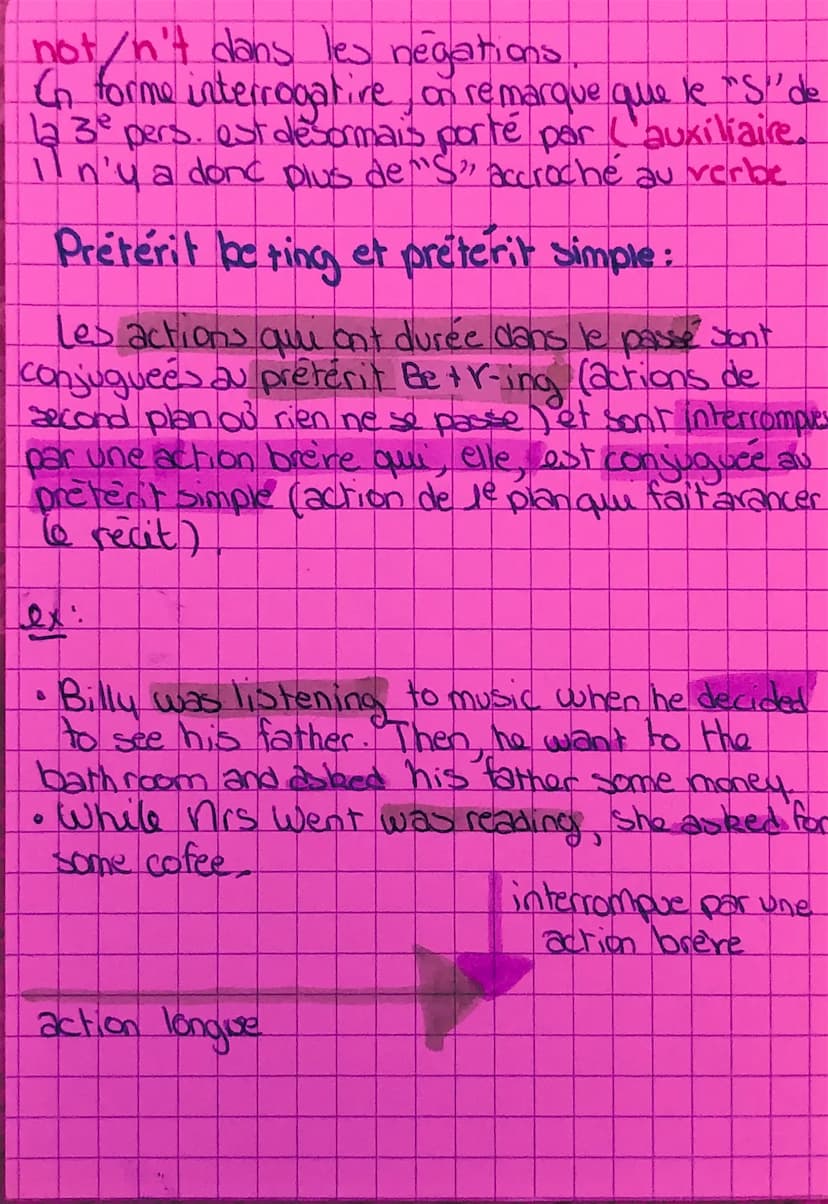 not/n't dans les négations.
En forme interrogative, on remarque que le "S" de
la 3e pers. est désormais porté par l'auxiliaire.
il n'y a donc plus de "S" accroché au verbe
Prétérit be + ing et prétérit simple :
Les actions qui ont durée dans le passé sont
conjugueés au prétérit Be + V-ing (actions de
second plan où rien ne se passe) et sont interrompues
par une action brève qui, elle, est conjuguée au
prétérit simple (action de 1e plan qui fait avancer
le récit).
ex :
• Billy was listening to music when he decided
to see his father. Then, he want to the
bathroom and asked his father some money.
• While Mrs Went was reading, she asked for
some cofee.
interrompue par une
action brève
action longue